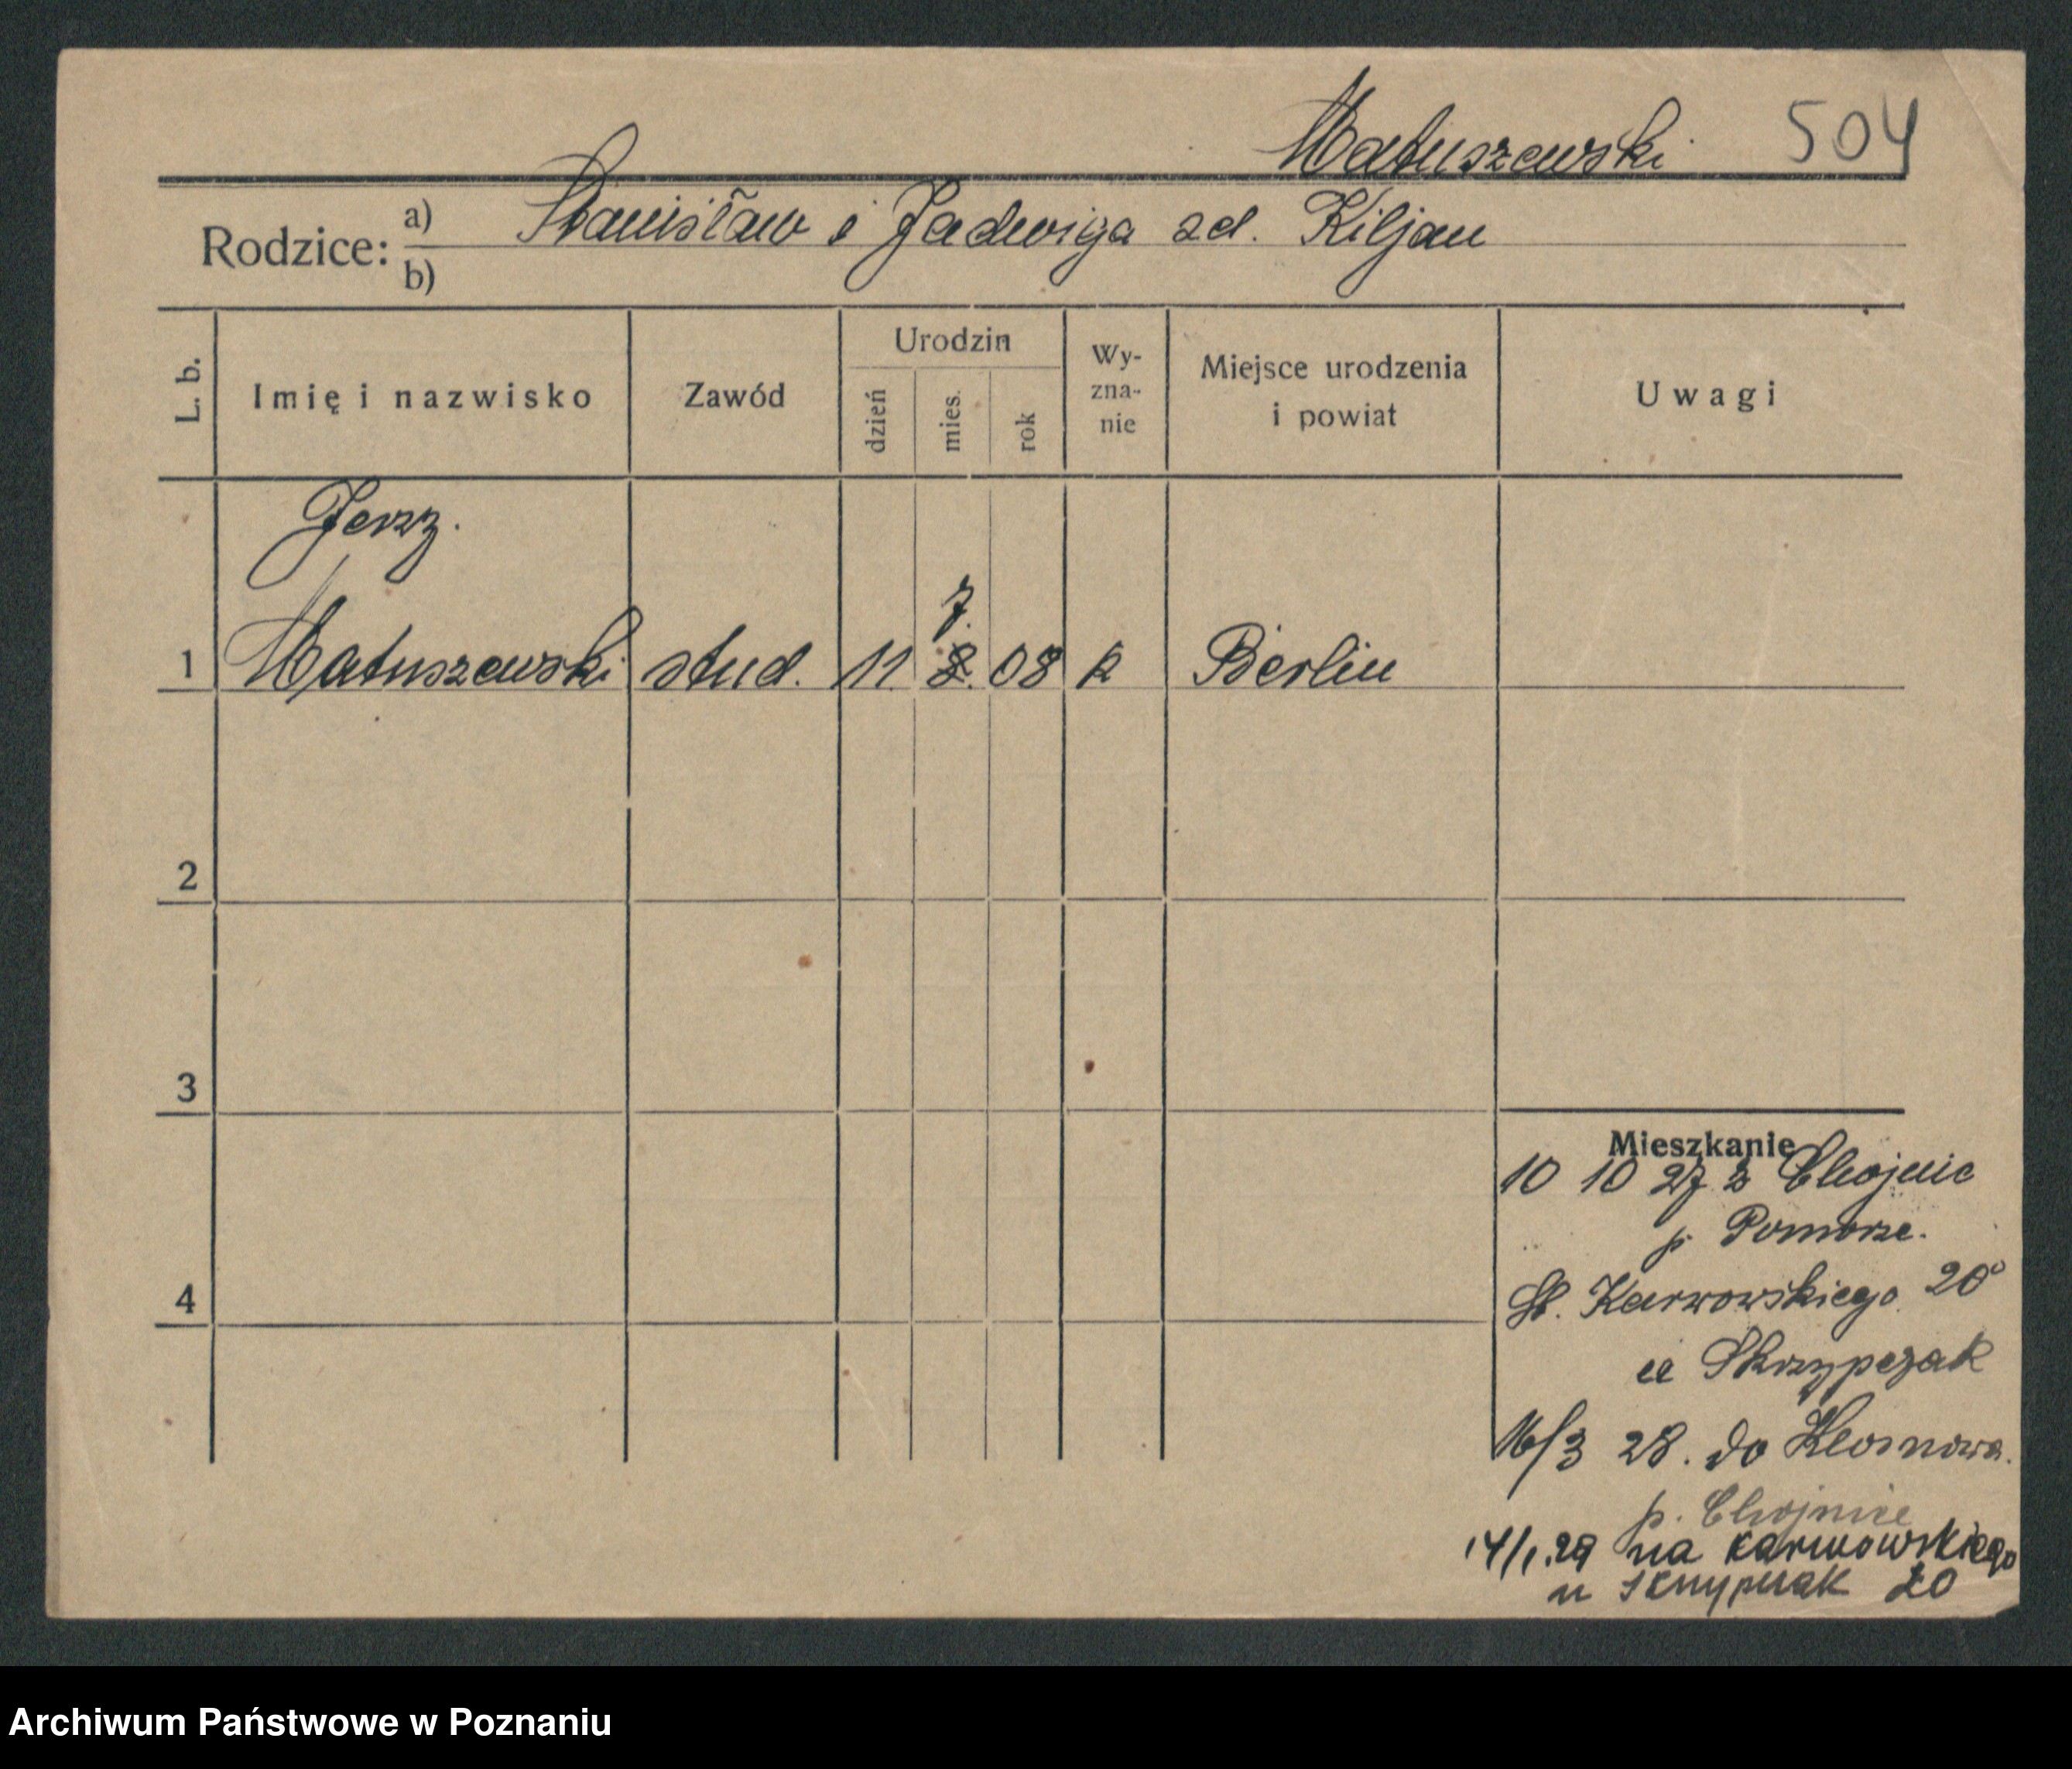 Matuszewski 504
Rodzice: a) Stanisław i Jadwiga zd. Kiljan
b)
L. b. Imię i nazwisko Zawód Urodzin dzień mies. rok Wy-zna-nie Miejsce urodzenia i powiat Uwagi
Jerzy.
7.
1 Matuszewski stud. 11. 8. 08 k Berlin
2
3
Mieszkanie
10 10 27 z Chojnic
p. Pomorze.
4
St. Karwowskiego 20
u Skrzypczak
16/3 28. do Klosnowa.
p. Chojnice
14/1.29 na Karwowskiego
u Skrzypczak 20
Archiwum Państwowe w Poznaniu